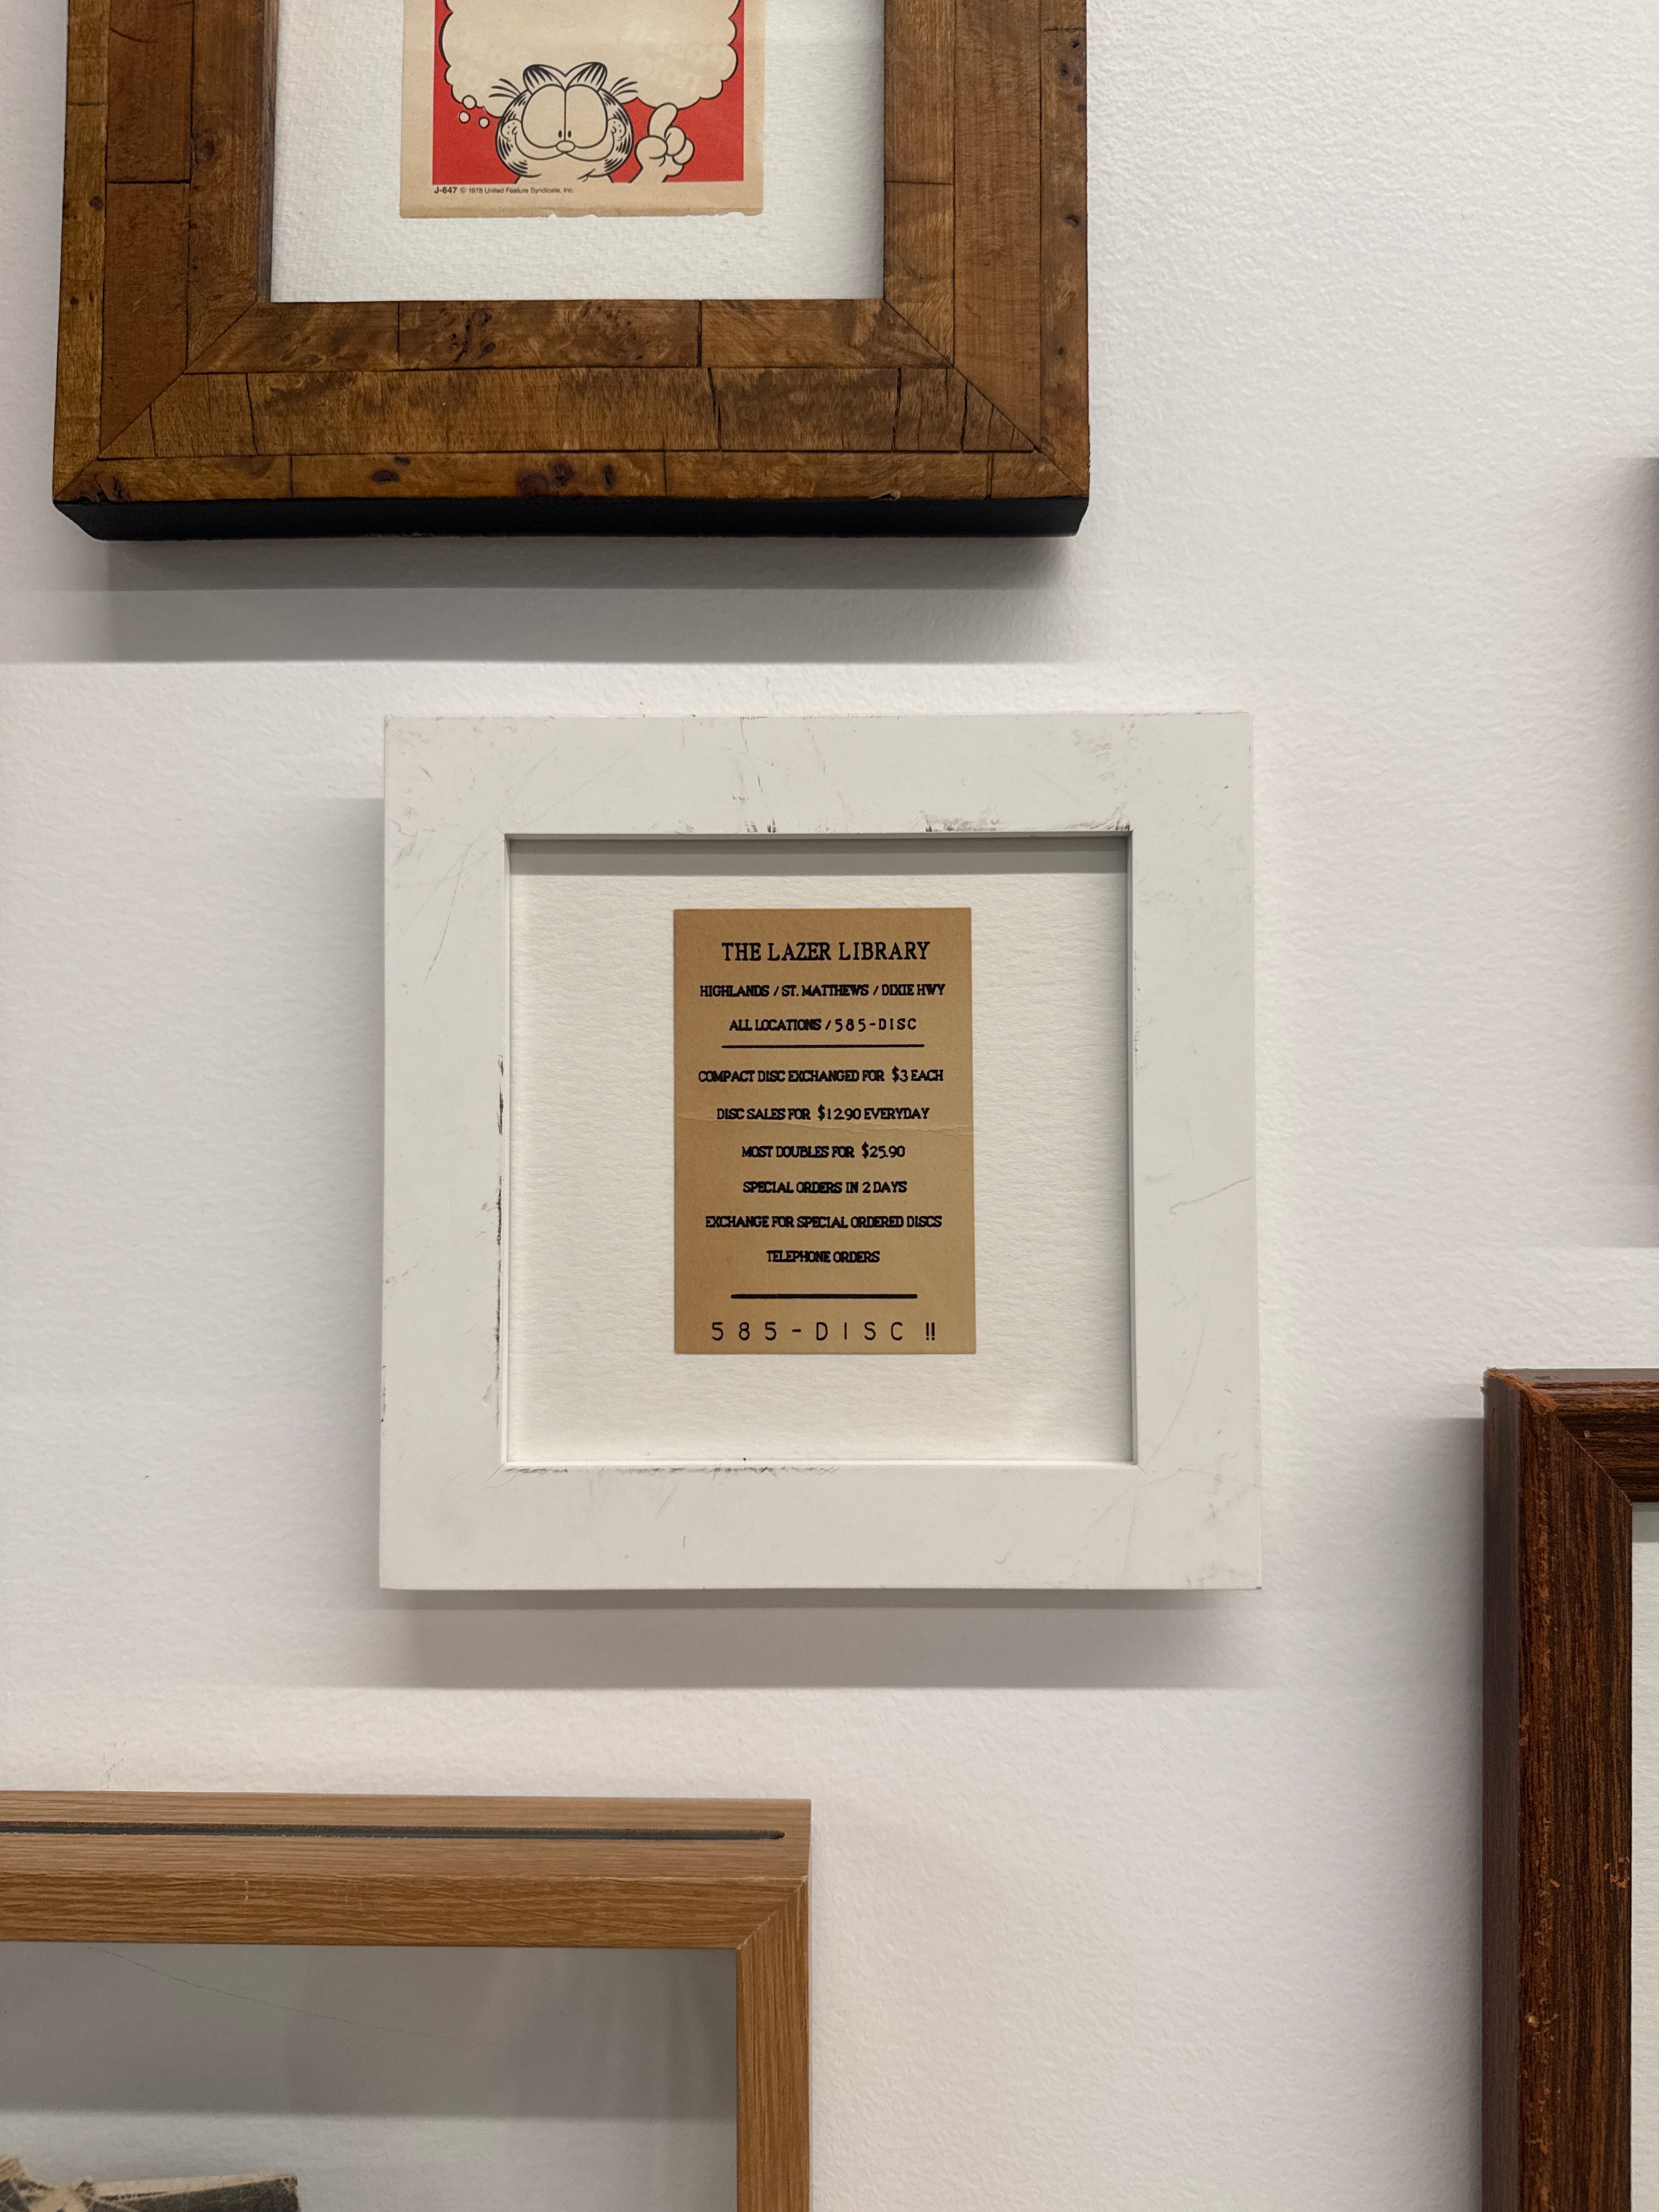 J-647 © 1978 United Feature Syndicate, Inc.
THE LAZER LIBRARY
HIGHLANDS / ST. MATTHEWS / DIXIE HWY
ALL LOCATIONS / 585-DISC
COMPACT DISC EXCHANGED FOR $3 EACH
DISC SALES FOR $12.90 EVERYDAY
MOST DOUBLES FOR $25.90
SPECIAL ORDERS IN 2 DAYS
EXCHANGE FOR SPECIAL ORDERED DISCS
TELEPHONE ORDERS
585-DISC !!